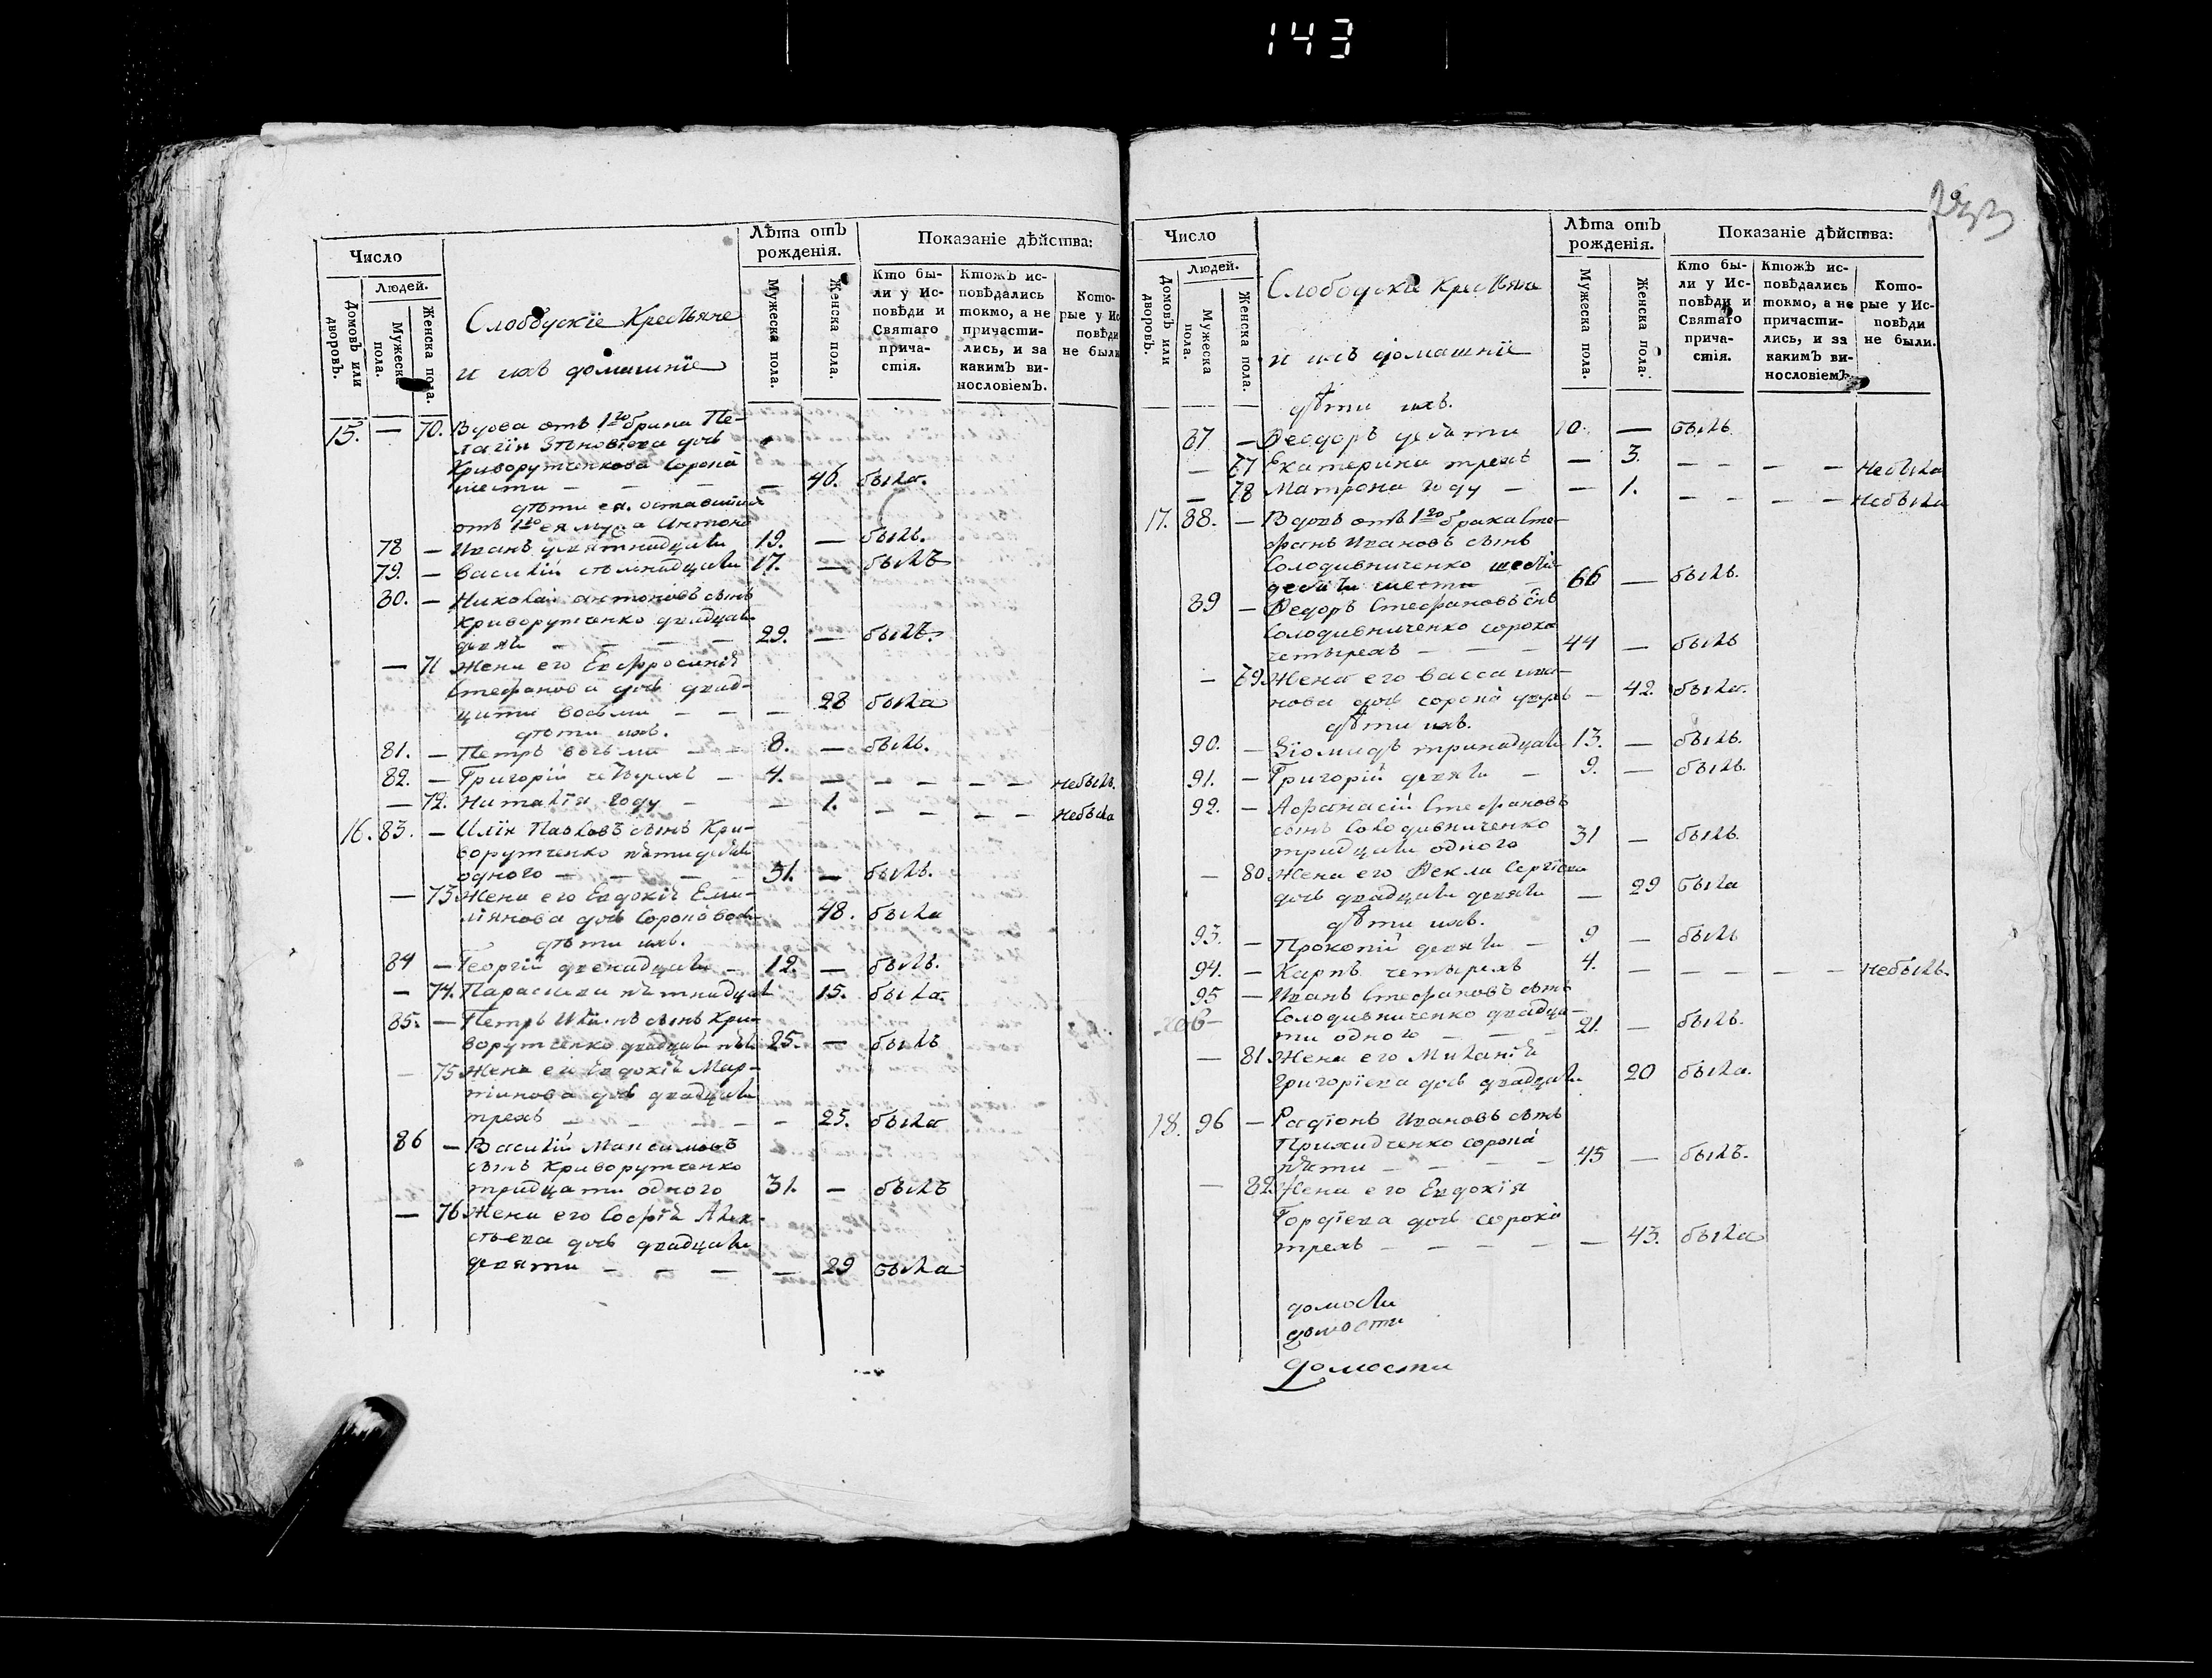 143
Число
Людей.
Домовъ или дворовъ.
Мужеска пола.
Женска пола.
Слободскіе Крестьяне
и ихъ домашніе
Лѣта отъ рожденія.
Мужеска пола.
Женска пола.
Показаніе дѣйства:
Кто были у Исповѣди и Святаго причастія.
Ктожъ исповѣдались токмо, а не причастились, и за какимъ винословіемъ.
Которые у Исповѣди не были
15. — 70. Вдова отъ 1го брака Пе-
лагія Зѣновіева дочь
Криворутченкова сорока
шести — — — — 46. была.
дѣти ея оставшіяся
отъ 1го ея мужа Антона
78 — Иванъ девятнадцати 19. — былъ.
79. — Василій сѣмнадцати 17. — былъ
80. — Николай антоновъ сынъ
Криворутченко двадцати
девяти — — — 29. — былъ.
— 71 Жена его Евфросинія
Стефанова дочь двад-
цати восьми — — — 28 была
дѣти ихъ.
81. — Петръ восьми — — 8. — былъ.
82. — Григорій четырехъ — 4. — — — — — небылъ.
— 72. Наталія году — — 1. — — — — небыла
16. 83. — Илія Павловъ сынъ Кри-
ворутченко пятидесяти
одного — — — — 51. — былъ.
— 73 Жена его Евдокія Еми-
ліянова дочь сорока вось 48. была
дѣти ихъ.
84 — Георгій двенадцати — 12. — былъ.
— 74. Параскева пятнадцати 15. была.
85. — Петръ Иліинъ сынъ Кри-
ворутченко двадцати пяти 25. — былъ
— 75 Жена ея Евдокія Мар-
тинова дочь двадцати
трехъ — — — — — 23. была
86 — Василій Максимовъ
сынъ Криворутченко
тридцати одного 31. — былъ
— 76 Жена его Софія Алек-
сѣева дочь двадцати
девяти — — — — 29 была
Число
Людей.
Домовъ или дворовъ.
Мужеска пола.
Женска пола.
Слободскіе Крестьяне
и ихъ домашніе
Лѣта отъ рожденія.
Мужеска пола.
Женска пола.
Показаніе дѣйства:
Кто были у Исповѣди и Святаго причастія.
Ктожъ исповѣдались токмо, а не причастились, и за какимъ винословіемъ.
Которые у Исповѣди не были.
дѣти ихъ.
87 — Ѳеодоръ десяти 10. — былъ.
— 77 Екатерина трехъ — 3. — — — — Небыла
— 78 Матрона году — — 1. — — — — Небыла
17. 88. — Вдовъ отъ 1го брака Сте-
фанъ Ивановъ сынъ
Солодивниченко шести-
десяти шести 66 — былъ.
89 — Ѳедоръ Стефановъ снъ
Солодивниченко сорока
четырехъ — — — 44 — былъ
— 79. Жена его Васса ива-
нова дочь сорока двухъ — 42. была.
дѣти ихъ.
90. — Діомидъ тринадцати 13. — былъ.
91. — Григорій девяти — 9. — былъ.
92. — Афанасій Стефановъ
сынъ Солодивниченко
тридцати одного 31 — былъ.
— 80. Жена его Ѳекла Сергіева
дочь двадцати девяти — 29 была
дѣти ихъ.
93. — Прокопій девяти — 9 — былъ
94. — Карпъ четырехъ 4. — — — — — небылъ.
95 — Иванъ Стефановъ сынъ
Солодивниченко двадца-
ти одного — — — 21. — былъ.
— 81. Жена его Миланія
Григоріева дочь двадцати 20 была.
18. 96 — Радіонъ Ивановъ сынъ
Прихидченко сорока
пяти — — — — 45 — былъ.
— 82. Жена его Евдокія
Гордіева дочь сорока
трехъ — — — — — 43. была
домости
домости
домости